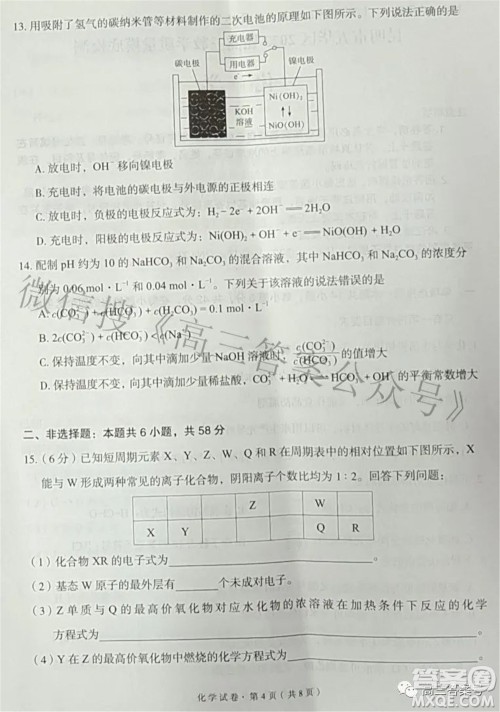 13. 用吸附了氢气的碳纳米管等材料制作的二次电池的原理如下图所示。下列说法正确的是
充电器
用电器
碳电极
镍电极
KOH
溶液
Ni(OH)₂
NiO(OH)
A. 放电时，OH⁻ 移向镍电极
B. 充电时，将电池的碳电极与外电源的正极相连
C. 放电时，负极的电极反应式为：H₂－2e⁻＋2OH⁻══2H₂O
D. 充电时，阳极的电极反应式为：Ni(OH)₂＋OH⁻══NiO(OH)＋H₂O＋e⁻
14. 配制 pH 约为 10 的 NaHCO₃ 和 Na₂CO₃ 的混合溶液，其中 NaHCO₃ 和 Na₂CO₃ 的浓度分
别为 0.06 mol·L⁻¹ 和 0.04 mol·L⁻¹。下列关于该溶液的说法错误的是
A. c(CO₃²⁻)＋c(HCO₃⁻)＋c(H₂CO₃)＝0.1 mol·L⁻¹
B. 2c(CO₃²⁻)＋c(HCO₃⁻)＜c(Na⁺)
C. 保持温度不变，向其中滴加少量 NaOH 溶液时，c(CO₃²⁻)/c(HCO₃⁻) 的值增大
D. 保持温度不变，向其中滴加少量稀盐酸，CO₃²⁻＋H₂O⇌HCO₃⁻＋OH⁻ 的平衡常数增大
二、非选择题：本题共 6 小题，共 58 分
15. (6 分) 已知短周期元素 X、Y、Z、W、Q 和 R 在周期表中的相对位置如下图所示，X
能与 W 形成两种常见的离子化合物，阴阳离子个数比均为 1∶2。回答下列问题：
Z W
X Y Q R
(1) 化合物 XR 的电子式为
(2) 基态 W 原子的最外层有 个未成对电子。
(3) Z 单质与 Q 的最高价氧化物对应水化物的浓溶液在加热条件下反应的化学
方程式为
(4) Y 在 Z 的最高价氧化物中燃烧的化学方程式为
化学试卷·第 4 页（共 8 页）
微信搜《高三答案公众号》
高三答案号
答案圈
MXQE.COM